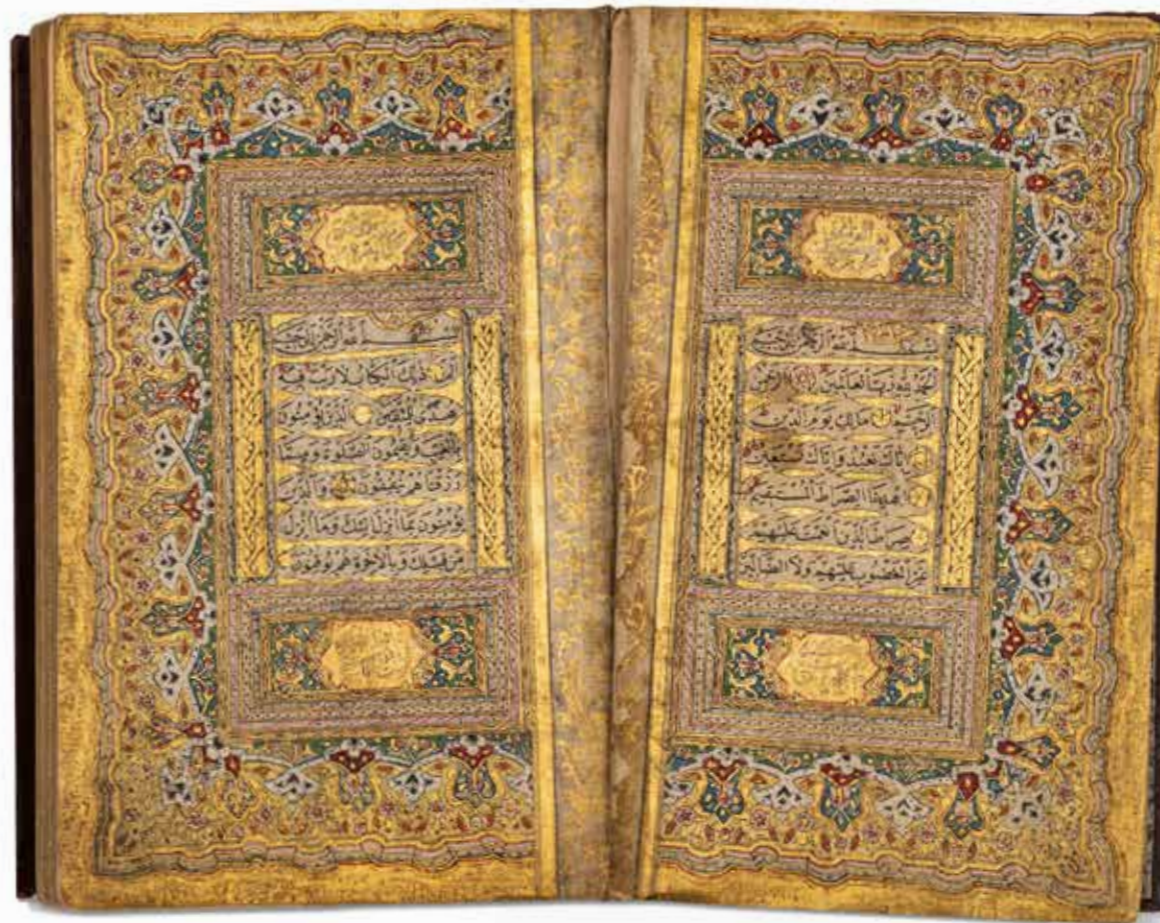 بسم الله الرحمن الرحيم
الحمد لله رب العالمين الرحمن
الرحيم مالك يوم الدين
اياك نعبد واياك نستعين
اهدنا الصراط المستقيم
صراط الذين انعمت عليهم
غير المغضوب عليهم ولا الضالين
بسم الله الرحمن الرحيم
الم ذلك الكتاب لا ريب فيه
هدى للمتقين الذين يؤمنون
بالغيب ويقيمون الصلوة ومما
رزقناهم ينفقون والذين
يؤمنون بما انزل اليك وما انزل
من قبلك وبالاخرة هم يوقنون